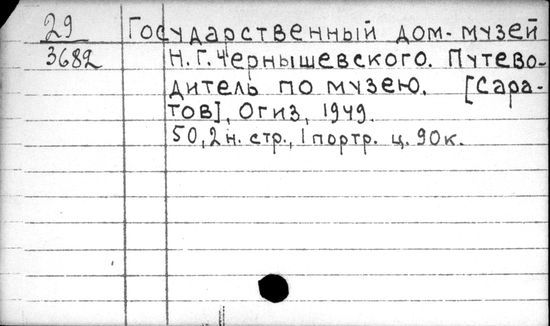 29 Государственный дом-музей
3682 Н.Г.Чернышевского. Путево-
дитель по музею. [Сара-
тов], Огиз, 1949.
50,2н. стр., 1 портр. ц. 90к.